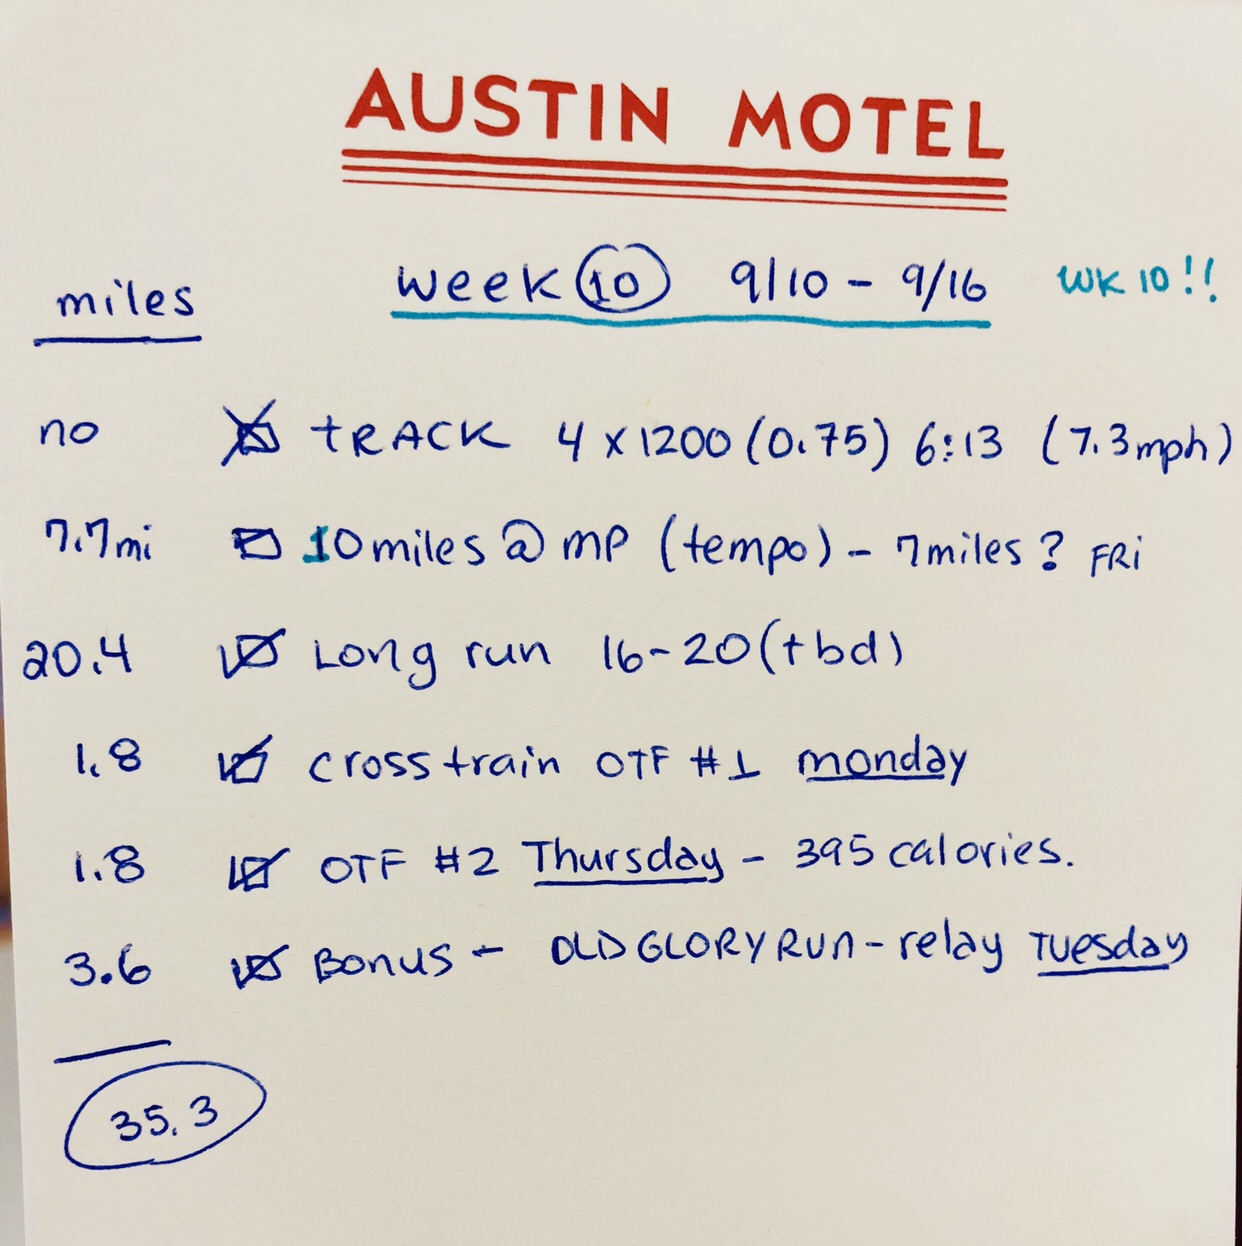 AUSTIN MOTEL
miles week 10 9/10 - 9/16 WK 10!!
no TRACK 4 x 1200 (0.75) 6:13 (7.3mph)
7.7mi 10 miles @ MP (tempo) - 7 miles? FRi
20.4 Long run 16-20 (tbd)
1.8 cross train OTF #1 monday
1.8 OTF #2 Thursday - 395 calories.
3.6 Bonus - OLD GLORY RUN - relay Tuesday
35.3